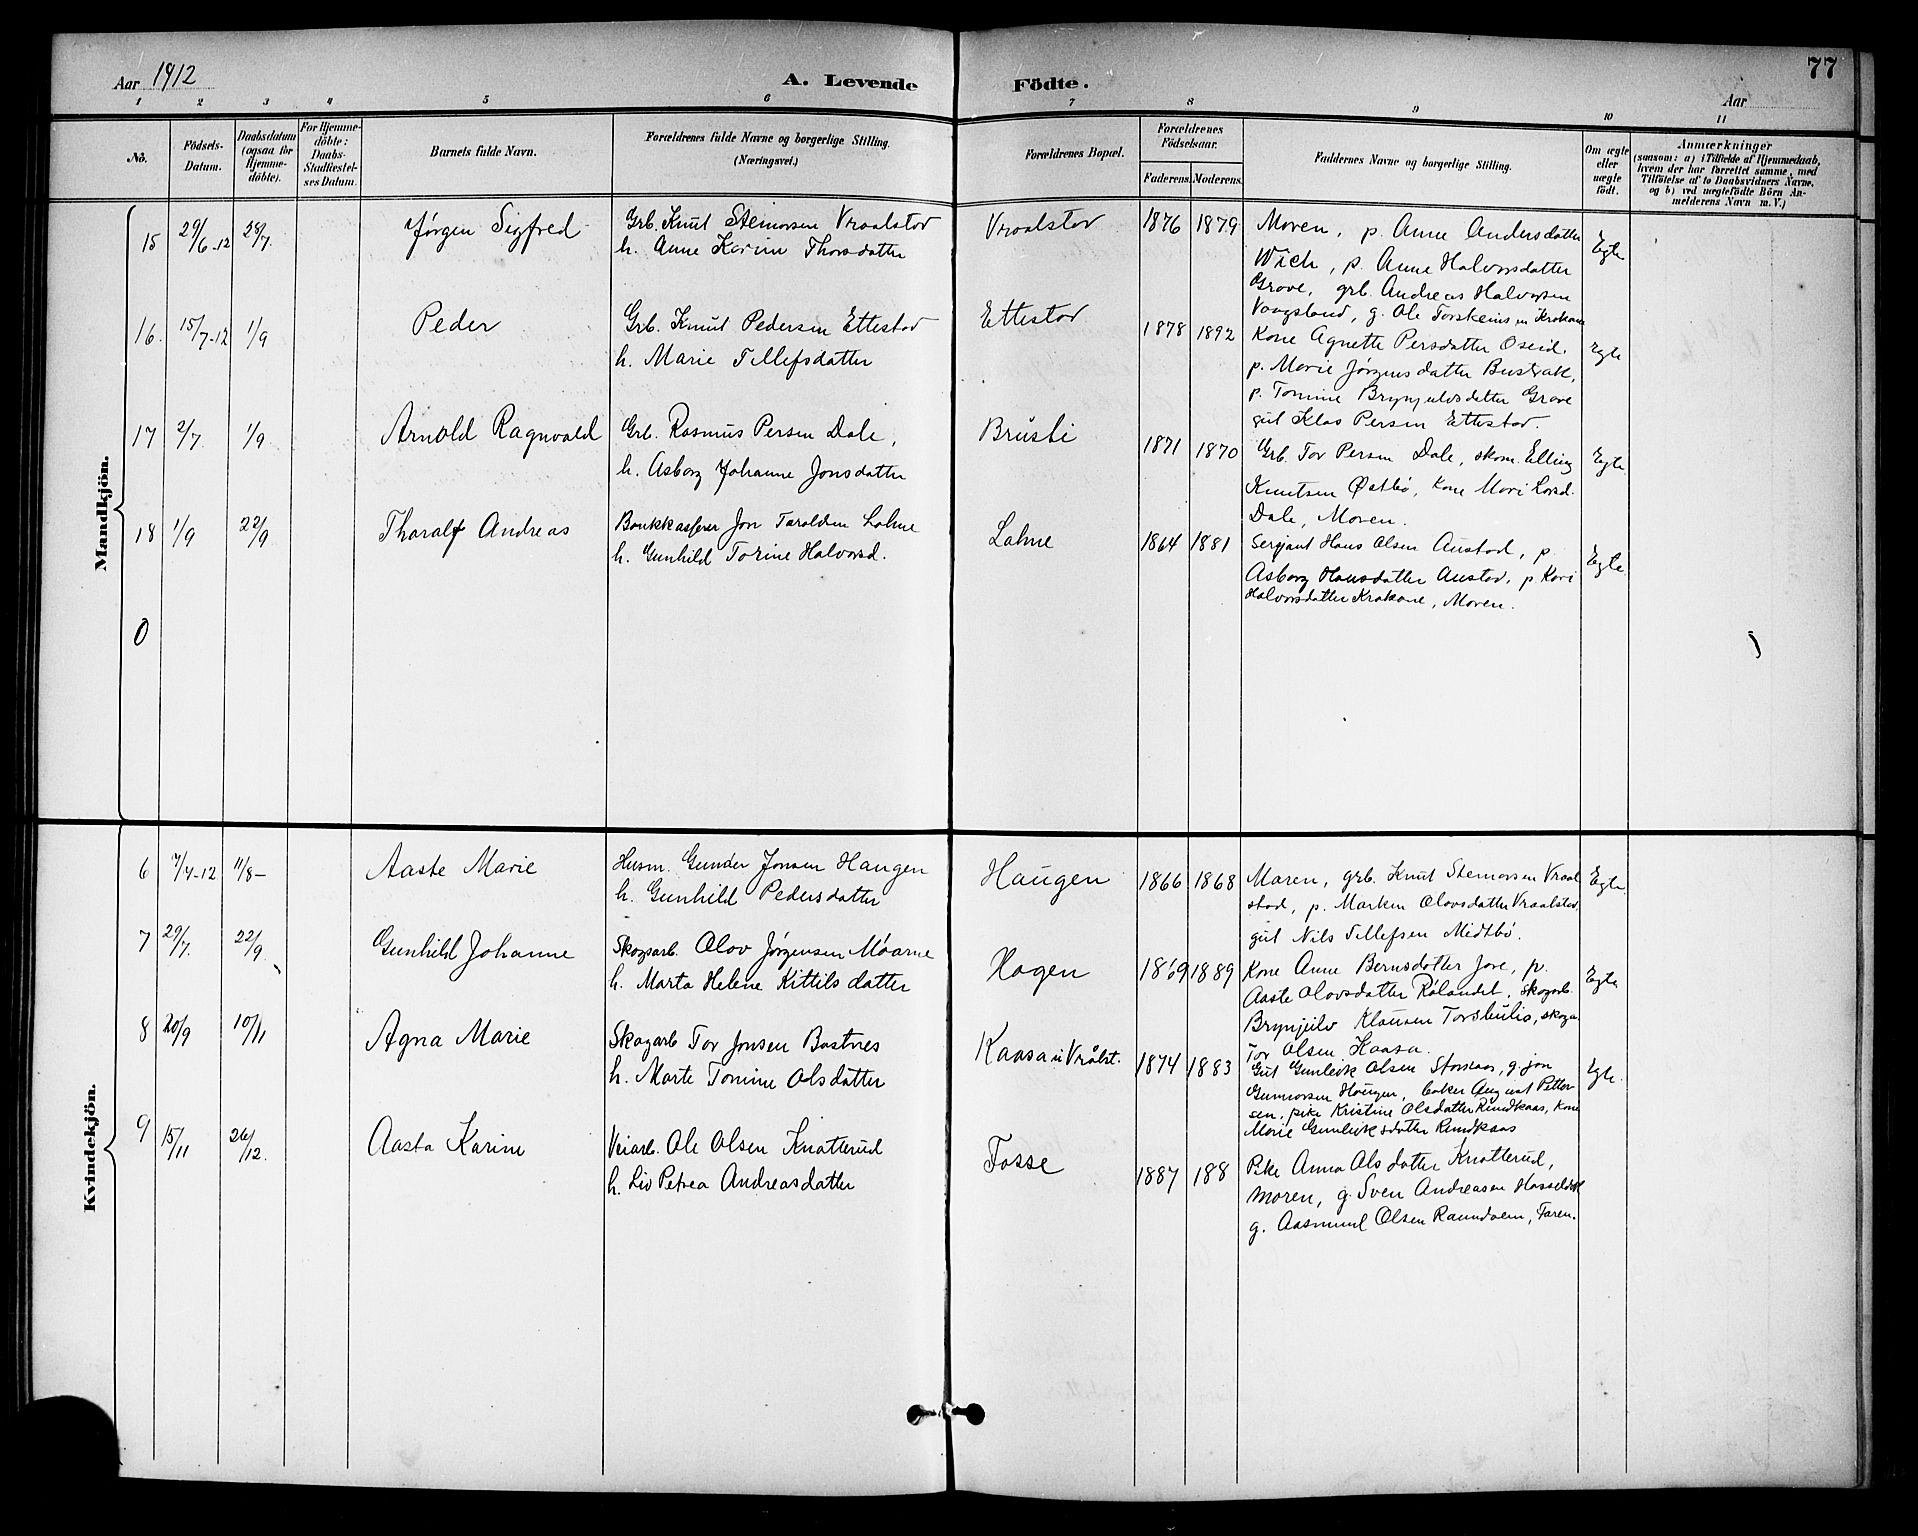 Aar 1912
A. Levende
Födte.
77
Aar
1 2 3 4 5 6 7 8 9 10 11
No.
Födsels-
Datum.
Daabsdatum
(ogsaa for
Hjemme-
döbte).
For Hjemme-
döbte:
Daabs-
Stadfæstel-
ses Datum.
Barnets fulde Navn.
Forældrenes fulde Navne og borgerlige Stilling.
(Næringsvei.)
Forældrenes Bopæl.
Forældrenes
Födselsaar.
Faderens. Moderens.
Faddernes Navne og borgerlige Stilling.
Om ægte
eller
uægte
födt.
Anmærkninger
(saasom: a) i Tilfælde af Hjemmedaab,
hvem der har forrettet samme, med
Tilföielse af to Daabsvidners Navne.
og b) ved uægtefödte Börn An-
melderens Navn m. V.)
Mandkjön.
15 29/6-12 28/7 Jørgen Sigfred
Grb. Knut Steinarsen Vraalstad
h. Anne Karine Thorsdatter
Vraalstad 1876 1879
Moren, p. Anne Andersdatter
Wich, p. Anne Halvorsdatter
Grave, grb. Andreas Halvorsen
Vaagsland, g. Ole Torsteinsen Krokane
Egte
16. 15/7-12 1/9 Peder
Grb. Knut Pedersen Ettestad
h. Marie Tellefsdatter
Ettestad 1878 1892
Kone Agnette Persdatter Oseid.
p. Marie Jørgensdatter Bustrak,
p. Tomine Brynjulvsdatter Grave
gut Klas Persen Ettestad.
Egte
17 2/7 1/9 Arnold Ragnvald
Grb. Rasmus Persen Dale,
h. Asborg Johanne Jonsdatter
Brusti 1871 1870
Grb. Tor Persen Dale, skom. Elling
Knutsen Østbø, Kone Mari Larsd.
Dale, Moren.
Egte
18 1/9 22/9 Tharalf Andreas
Bankkasserer Jon Taraldsen Lahne
h. Gunhild Torine Halvorsd.
Lahne 1864 1881
Sersjant Hans Olsen Austad, p.
Asborg Hansdatter Austad, p. Kari
Halvorsdatter Krokane, Moren.
Egte
0
Kvindekjön.
6 7/7-12 11/8- Aaste Marie
Husm. Gunder Jonsen Haugen
h. Gunhild Pedersdatter
Haugen 1866 1868
Maren, grb. Knut Steinarsen Vraal
stad, p. Marken Olavsdatter Vraalstad,
gut Nils Tellefsen Midtbø.
Egte
7 29/7. 22/9. Gunhild Johanne
Skogsarb. Olav Jørgensen Møarne
h. Marta Helene Kittilsdatter
Hagen 1869 1889
Kone Anne Berntsdatter Jore, p.
Aaste Olavsdatter Rølandet, skogarb.
Brynjeilv Klausen Torsbulia, skoga.
Tor Olsen Kaasa.
Egte
8 20/9 10/11 Agna Marie
Skogarb Tor Jonsen Bostnes
h. Marte Tomine Olsdatter
Kaasa u Vrålst. 1874 1883
Gut Gunleik Olsen Storkaas, g. Jon
Gunnarsen Haugen, baker August Petter
sen, pike Kristine Olsdatter Rundkaas, Kone
Marie Gunleiksdatter Rundkaas
Egte.
9 15/11 26/12. Aasta Karine
Veiarb. Ole Olsen Knatterud
h. Liv Petrea Andreasdatter
Fosse 1887 188
Pike Anna Olsdatter Knatterud,
Moren, g. Sven Andreasen Hasseldal
g. Aasmund Olsen Raundalen, Faren.